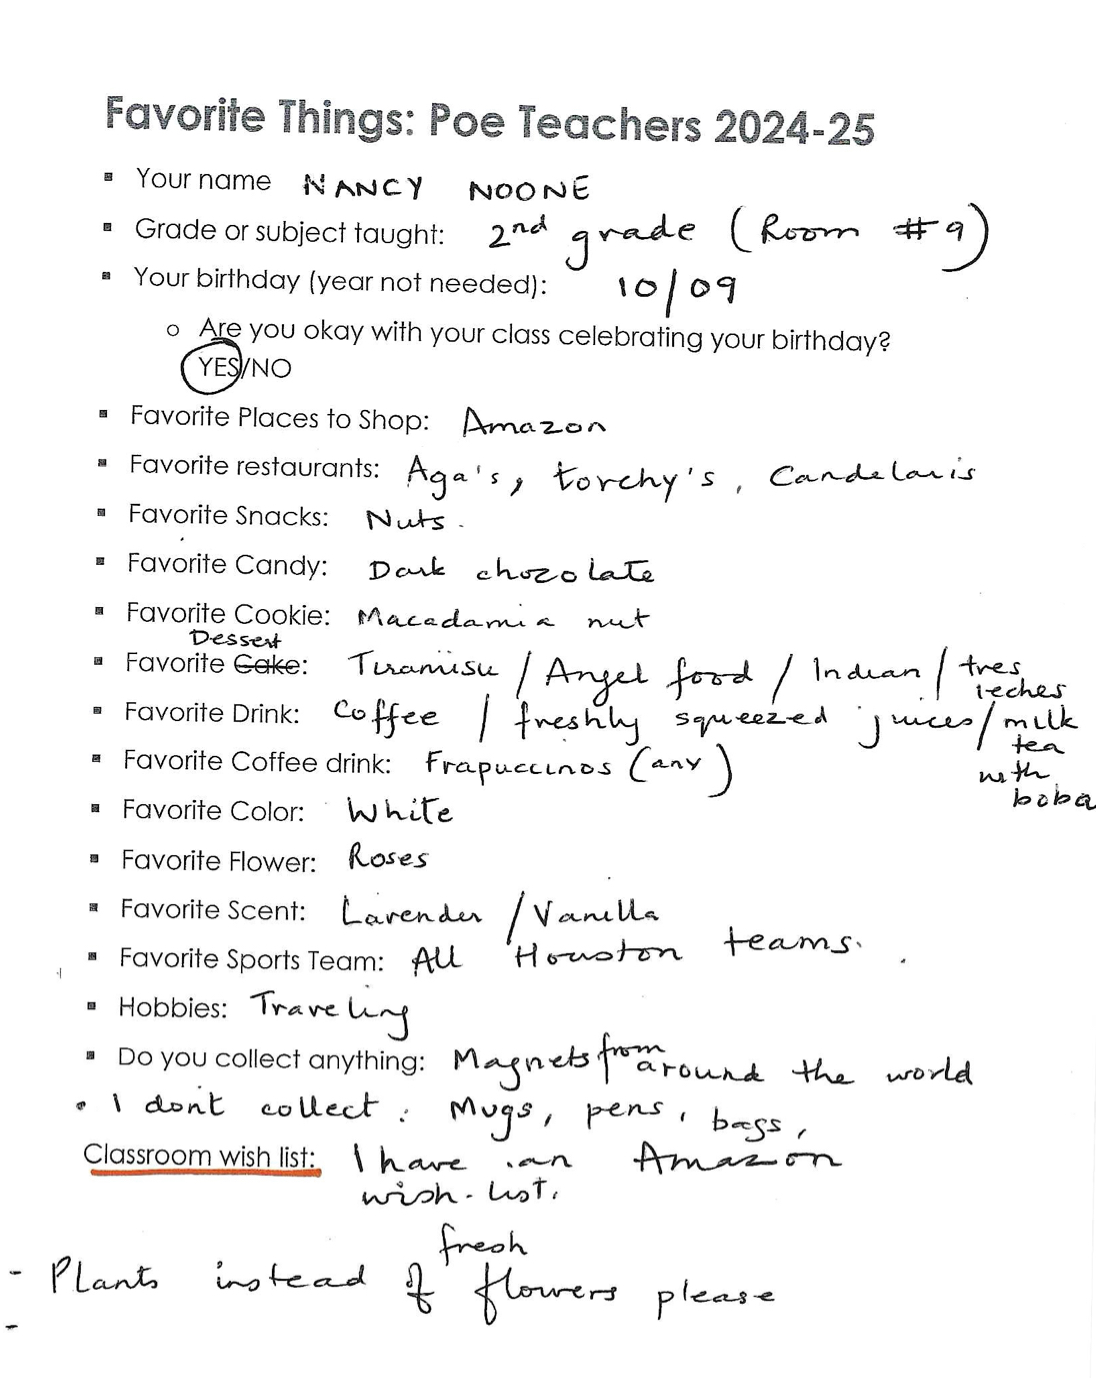 Favorite Things: Poe Teachers 2024-25
▪ Your name NANCY NOONE
▪ Grade or subject taught: 2nd grade (Room #9)
▪ Your birthday (year not needed): 10/09
o Are you okay with your class celebrating your birthday?
YES/NO
▪ Favorite Places to Shop: Amazon
▪ Favorite restaurants: Aga's, torchy's, Candelaris
▪ Favorite Snacks: Nuts.
▪ Favorite Candy: Dark chozolate
▪ Favorite Cookie: Macadamia nut
Dessert
▪ Favorite Cake: Tiramisu / Angel food / Indian / tres
leches
▪ Favorite Drink: Coffee / freshly squeezed juices/milk
tea
with
boba
▪ Favorite Coffee drink: Frapuccinos (any)
▪ Favorite Color: White
▪ Favorite Flower: Roses
▪ Favorite Scent: Lavender / Vanilla
▪ Favorite Sports Team: All Houston teams.
▪ Hobbies: Traveling
▪ Do you collect anything: Magnets from around the world
• I don't collect: Mugs, pens, bags,
Classroom wish list: I have an Amazon
wish-list.
fresh
- Plants instead of flowers please
-